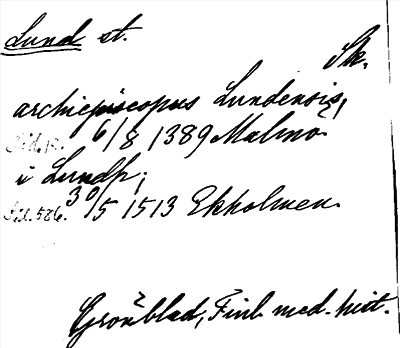 Lund st.
Sk.
archiepiscopus Lundensis,
6/8 1389 Malmö
i Lundh;
Sid. 586. 30/5 1513 Ekholmen
Grönblad, Finl. med. hist.